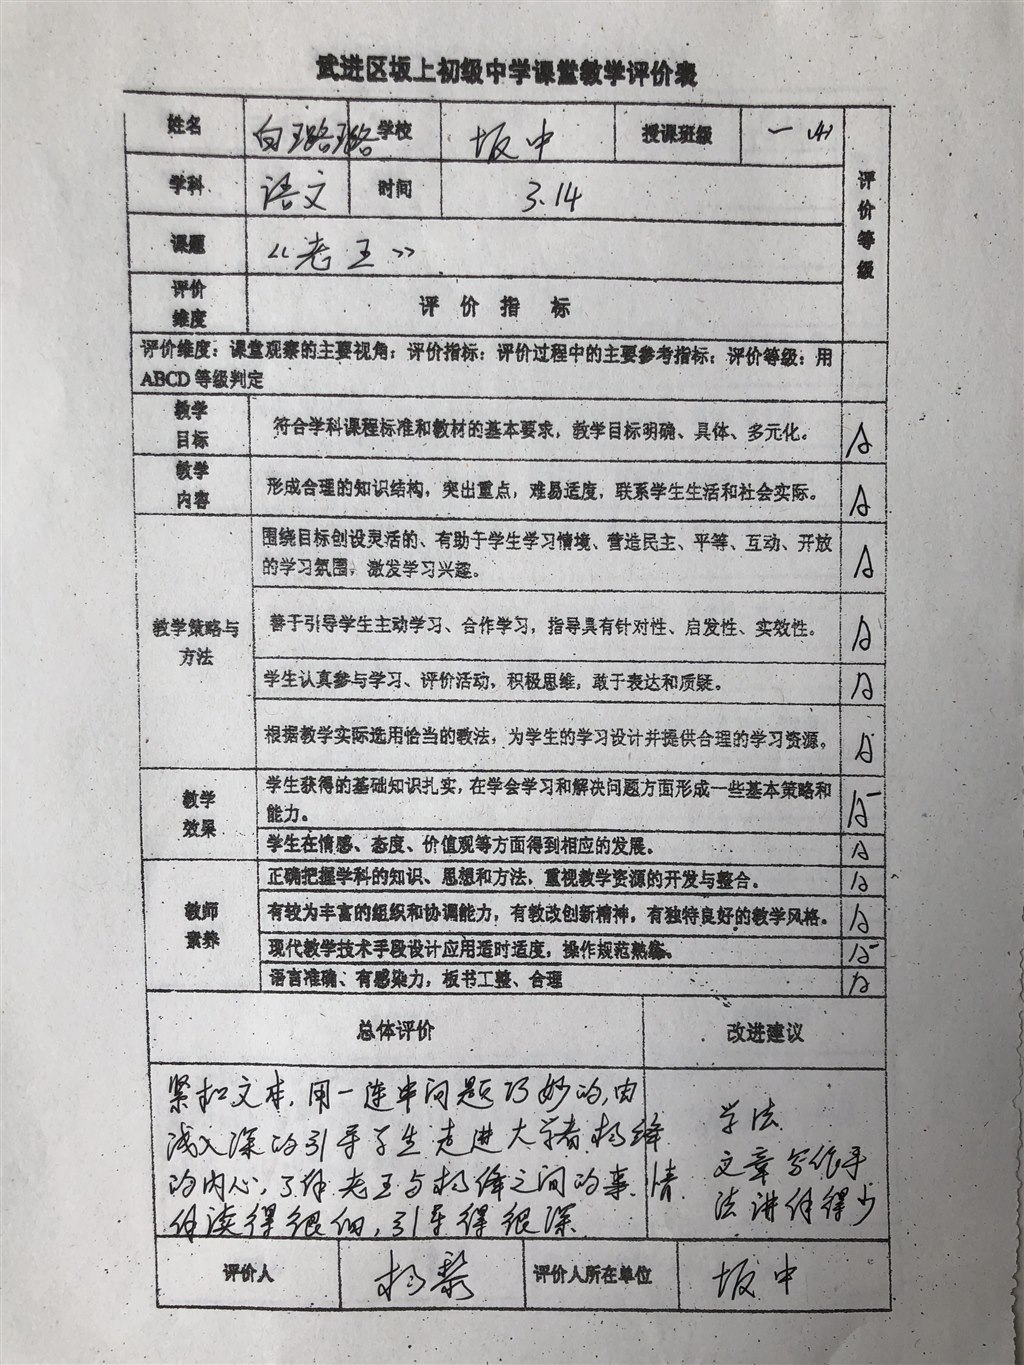 武进区坂上初级中学课堂教学评价表
姓名 白璐璐 学校 坂中 授课班级 一
评价等级
学科 语文 时间 3.14
课题 《老王》
评价维度 评价指标
评价维度：课堂观察的主要视角；评价指标：评价过程中的主要参考指标；评价等级：用
ABCD等级判定
教学目标 符合学科课程标准和教材的基本要求，教学目标明确、具体、多元化。 A
教学内容 形成合理的知识结构，突出重点，难易适度，联系学生生活和社会实际。 A
教学策略与方法
围绕目标创设灵活的、有助于学生学习情境、营造民主、平等、互动、开放
的学习氛围，激发学习兴趣。 A
善于引导学生主动学习、合作学习，指导具有针对性、启发性、实效性。 A
学生认真参与学习、评价活动，积极思维，敢于表达和质疑。 A
根据教学实际选用恰当的教法，为学生的学习设计并提供合理的学习资源。 A
教学效果
学生获得的基础知识扎实，在学会学习和解决问题方面形成一些基本策略和
能力。 A-
学生在情感、态度、价值观等方面得到相应的发展。 A
教师素养
正确把握学科的知识、思想和方法，重视教学资源的开发与整合。 A
有较为丰富的组织和协调能力，有教改创新精神，有独特良好的教学风格。 A
现代教学技术手段设计应用适时适度，操作规范熟练。 A-
语言准确、有感染力，板书工整、合理 A
总体评价 改进建议
紧扣文本，用一连串问题巧妙的，由
浅入深的引导学生走进大学者杨绛
的内心，了解老王与杨绛之间的事情
解读得很细，引导得很深
学法
文章写作手
法讲解得少
评价人 杨黎 评价人所在单位 坂中